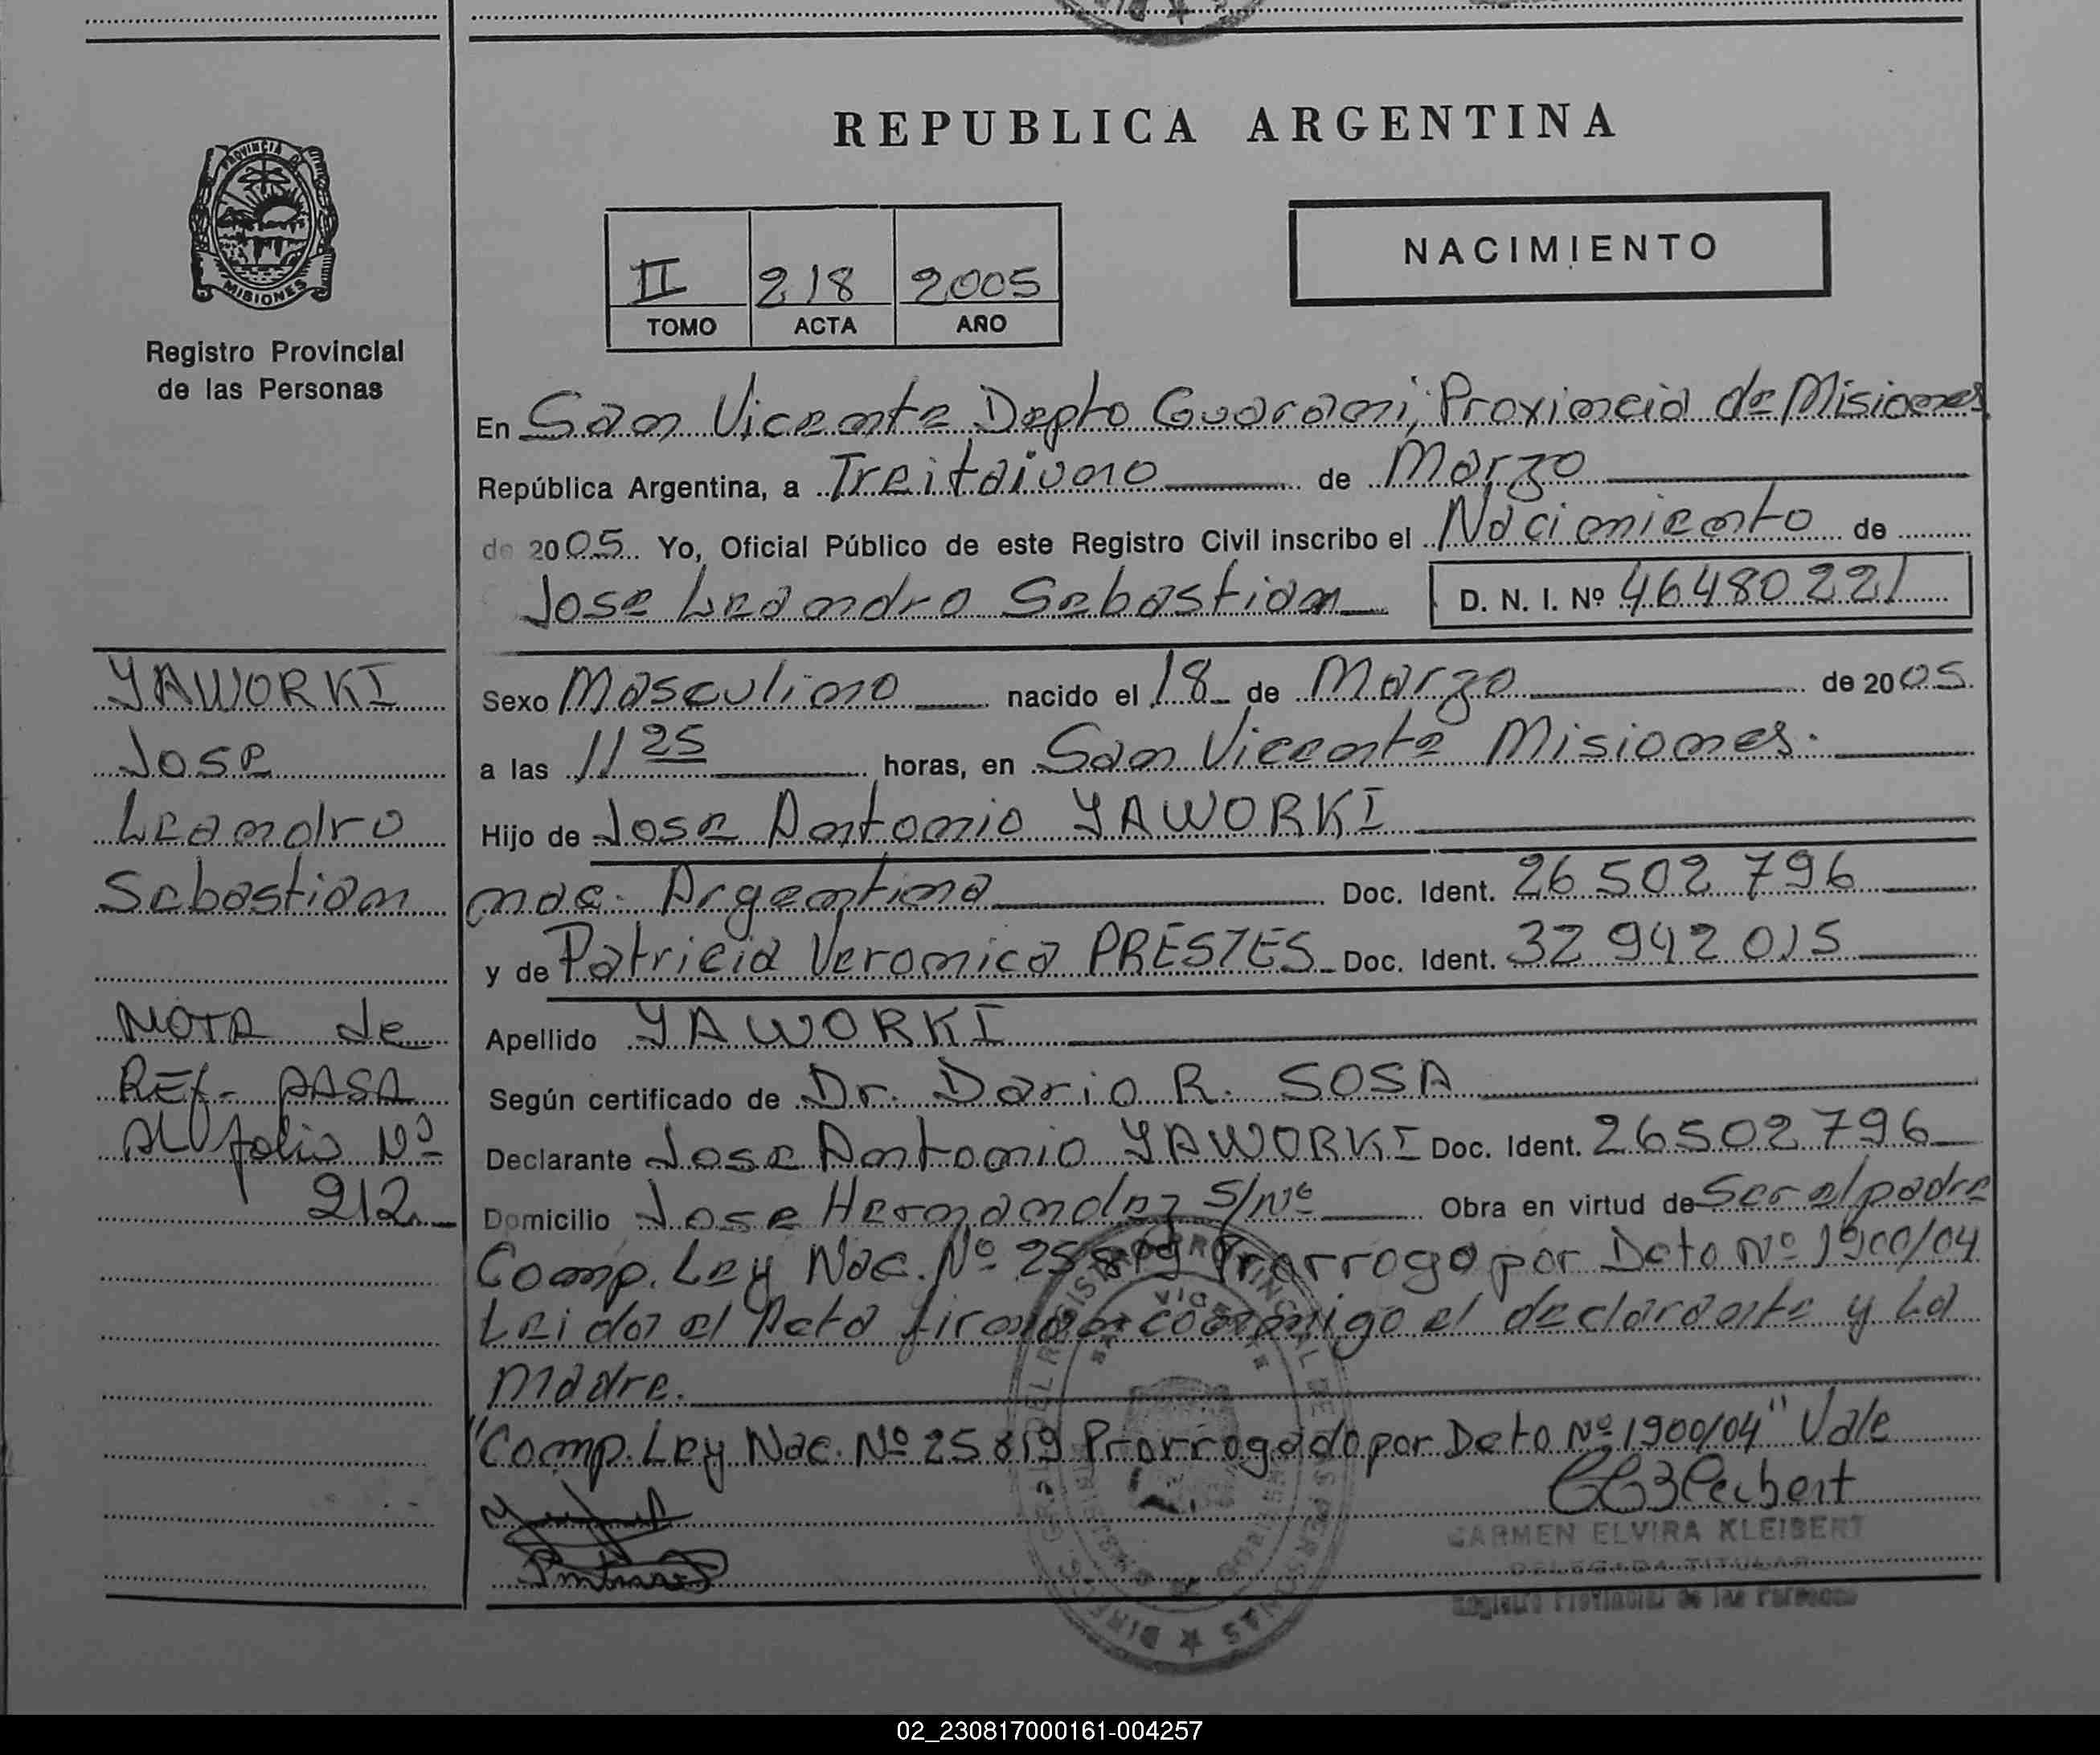 REPUBLICA ARGENTINA
PROVINCIA DE
MISIONES
Registro Provincial
de las Personas
II 218 2005
TOMO ACTA AÑO
NACIMIENTO
En San Vicente Depto Guarani, Provincia de Misiones
República Argentina, a Treitaiuno de Marzo
de 2005 Yo, Oficial Público de este Registro Civil inscribo el Nacimiento de
Jose Leandro Sebastian D. N. I. Nº 46480221
Sexo Masculino nacido el 18 de Marzo de 2005
a las 11 25 horas, en San Vicente Misiones.
Hijo de Jose Antonio YAWORKI
nac. Argentina Doc. Ident. 26 502 796
y de Patricia Veronica PRESTES Doc. Ident. 32 942 015
Apellido YAWORKI
Según certificado de Dr. Dario R. SOSA
Declarante Jose Antonio YAWORKI Doc. Ident. 26502796
Domicilio Jose Hernandez S/Nº Obra en virtud de Ser el padre
Comp. Ley Nac. Nº 25819 Prorrogo por Dcto Nº 1900/04
Leida el Acta firman conmigo el declarante y La
Madre.
"Comp. Ley Nac. Nº 25819 Prorrogado por Dcto Nº 1900/04" Vale
CARMEN ELVIRA KLEIBERT
DELEGADA TITULAR
Registro Provincial de las Personas
YAWORKI
Jose
Leandro
Sebastian
NOTA de
REf- PASA
AL folio Nº
212
02_230817000161-004257